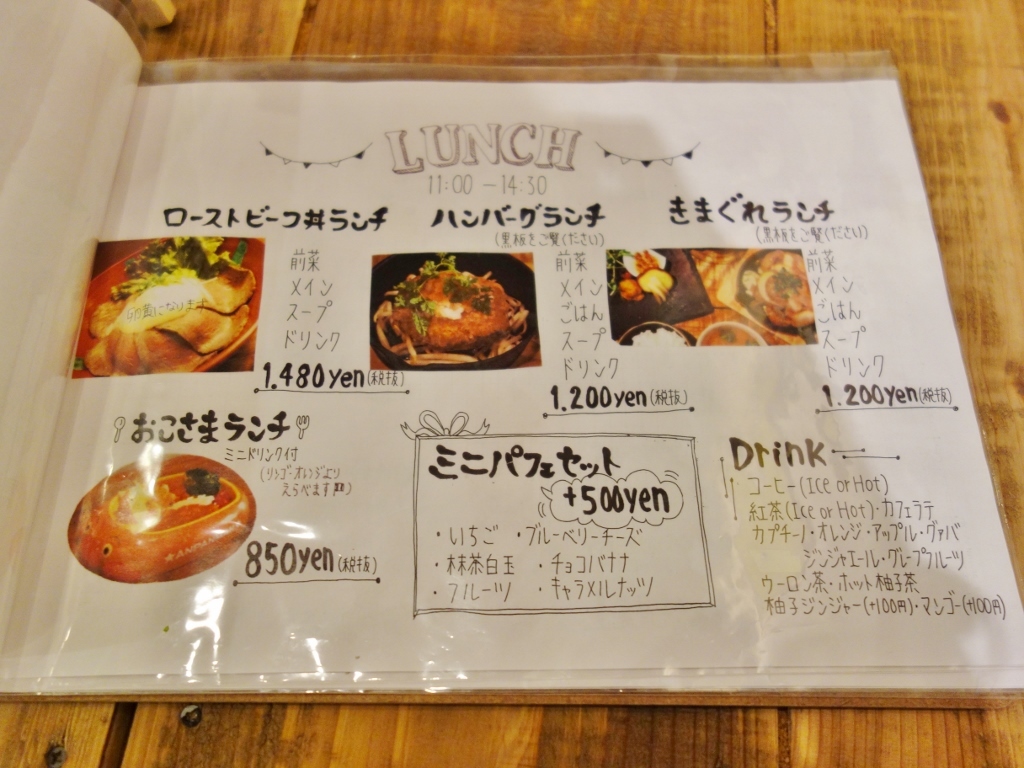 LUNCH
11:00 －14:30
ローストビーフ丼ランチ
前菜
メイン
スープ
ドリンク
1.480yen(税抜)
ハンバーグランチ
(黒板をご覧ください)
前菜
メイン
ごはん
スープ
ドリンク
1.200yen(税抜)
きまぐれランチ
(黒板をご覧ください)
前菜
メイン
ごはん
スープ
ドリンク
1.200yen(税抜)
おこさまランチ
ミニドリンク付
(リンゴ・オレンジより
えらべます)
850yen(税抜)
ミニパフェセット
+500yen
・いちご ・ブルーベリーチーズ
・抹茶白玉 ・チョコバナナ
・フルーツ ・キャラメルナッツ
Drink
コーヒー(Ice or Hot)
紅茶(Ice or Hot)・カフェラテ
カプチーノ・オレンジ・アップル・グァバ
ジンジャエール・グレープフルーツ
ウーロン茶・ホット柚子茶
柚子ジンジャー(+100円)・マンゴー(+100円)